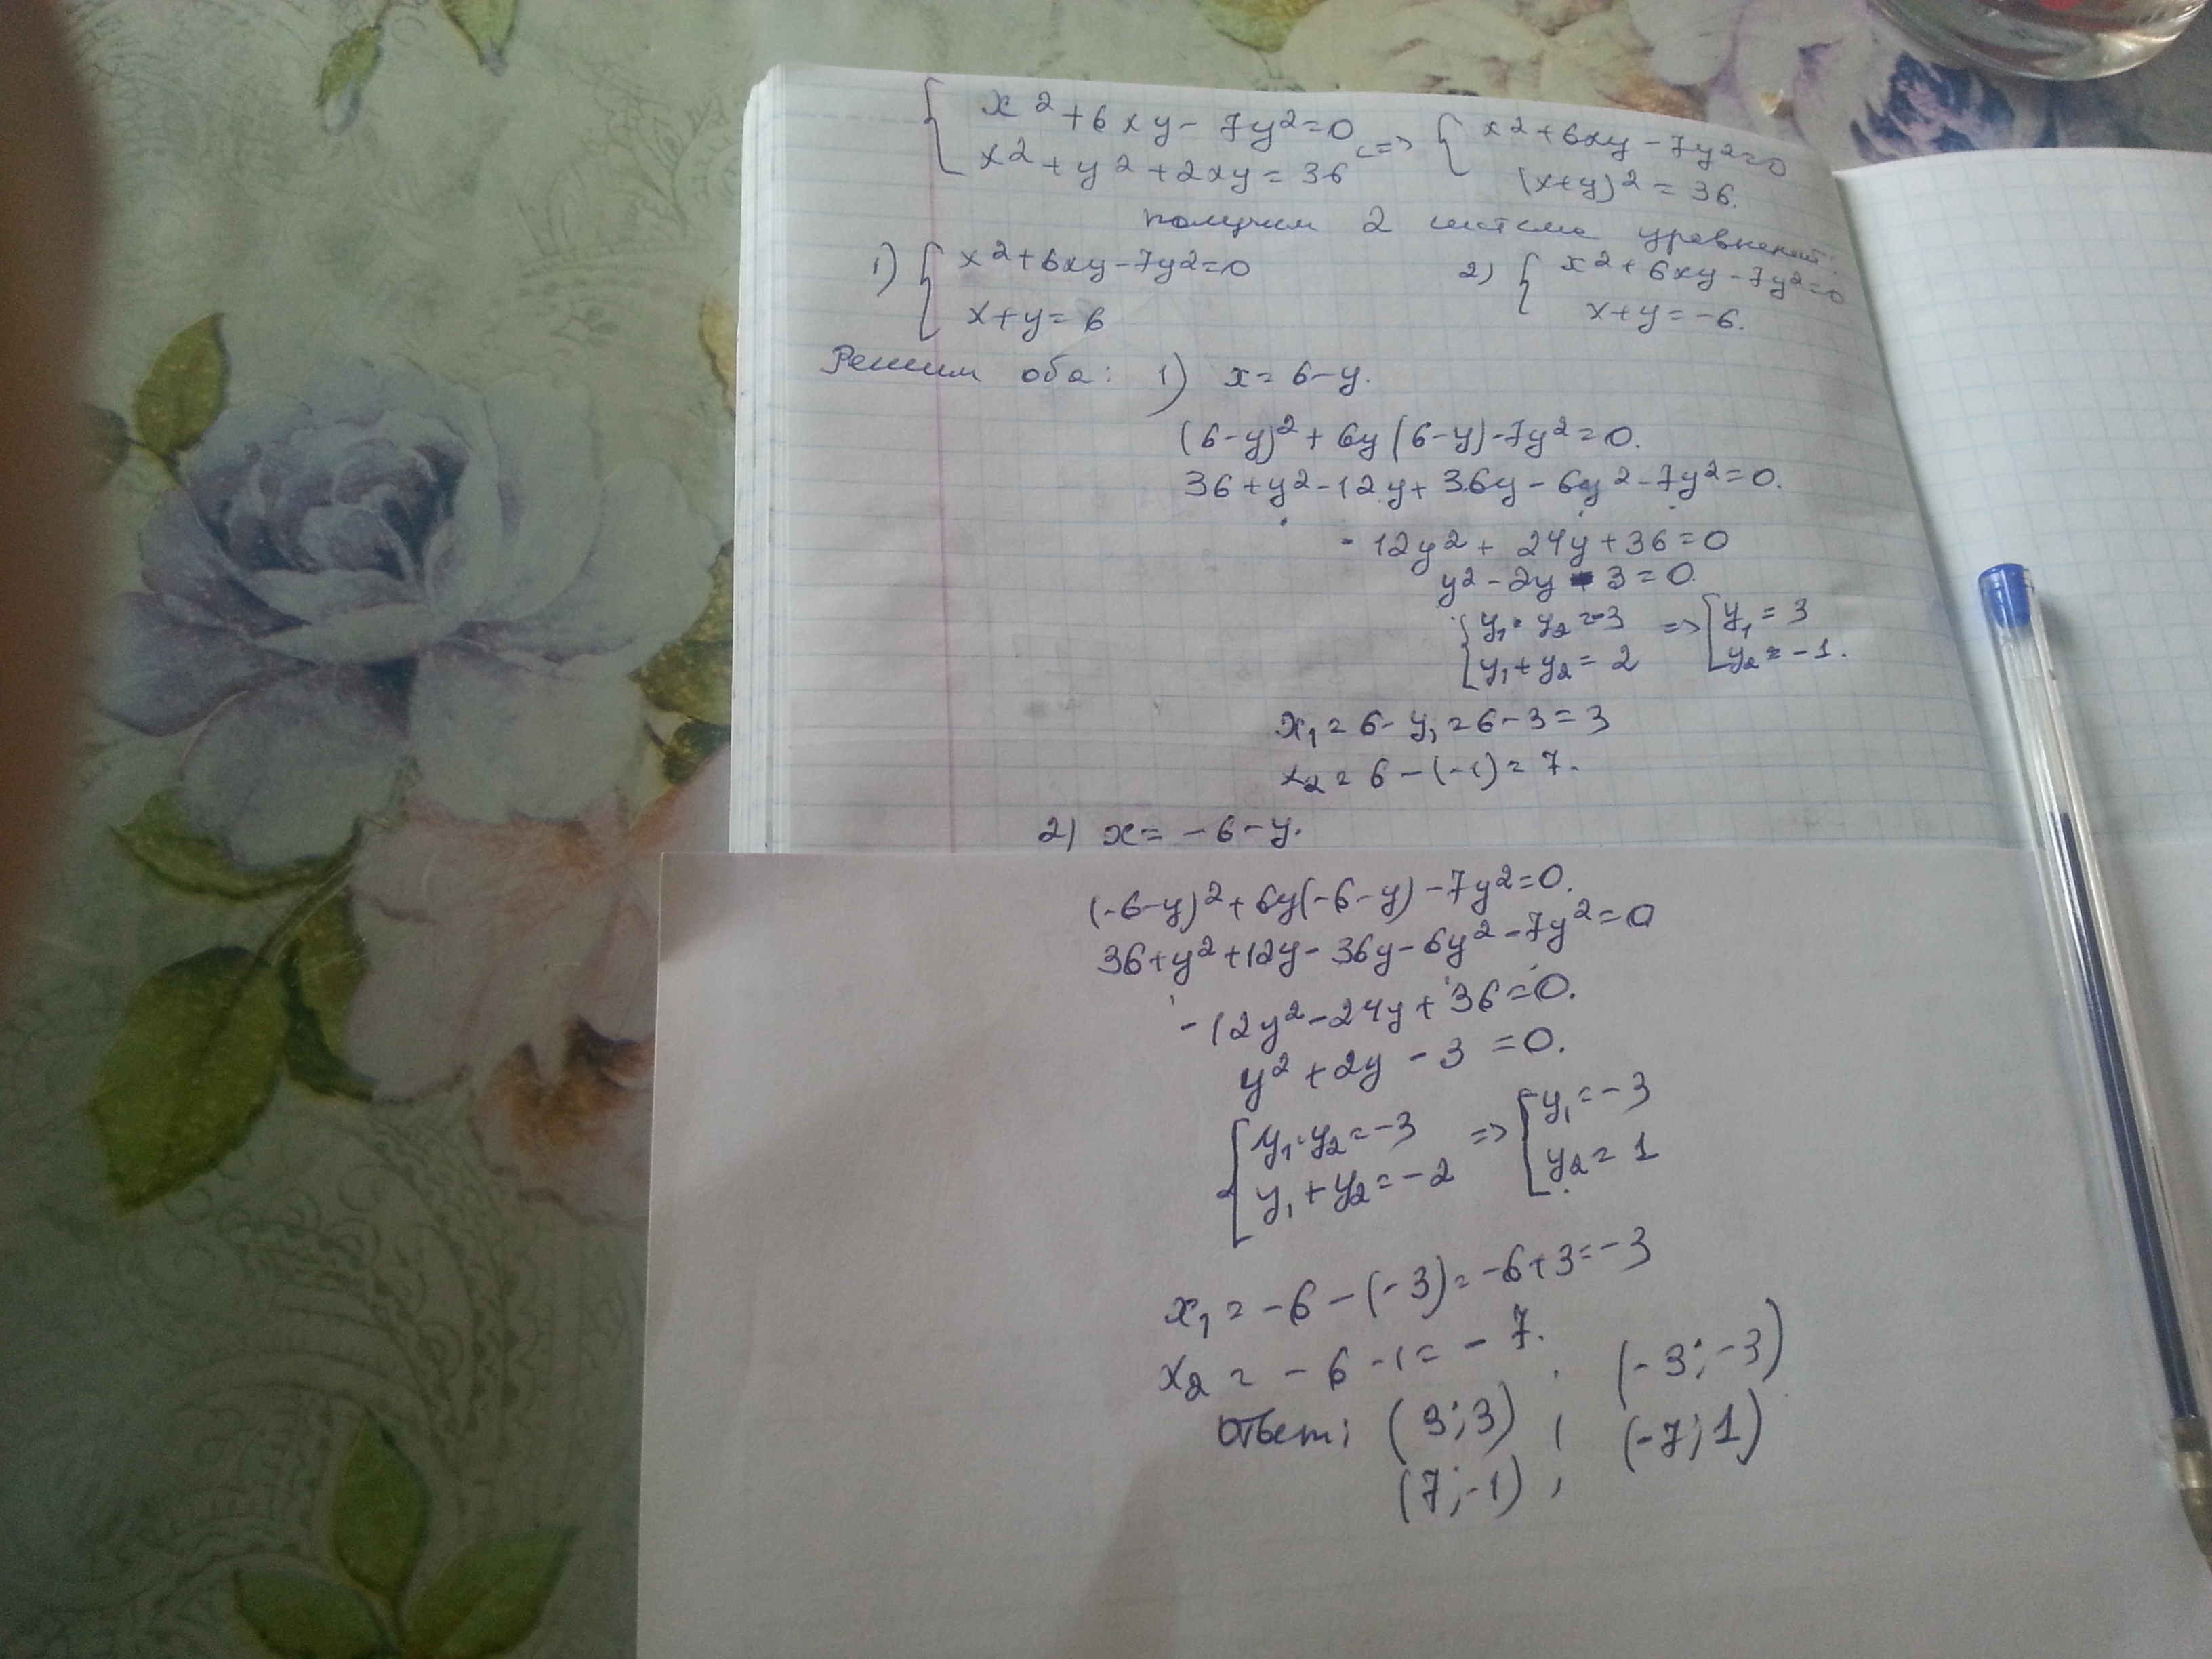 { x²+6xy-7y²=0 <=> { x²+6xy-7y²=0
x²+y²+2xy=36 (x+y)²=36.
получим 2 системы уравнений:
1) { x²+6xy-7y²=0 2) { x²+6xy-7y²=0
x+y=6 x+y=-6.
Решим оба: 1) x=6-y.
(6-y)²+6y(6-y)-7y²=0.
36+y²-12y+36y-6y²-7y²=0.
-12y²+24y+36=0
y²-2y-3=0.
{ y₁·y₂=-3 => [ y₁=3
y₁+y₂=2 y₂=-1.
x₁=6-y₁=6-3=3
x₂=6-(-1)=7.
2) x=-6-y.
(-6-y)²+6y(-6-y)-7y²=0.
36+y²+12y-36y-6y²-7y²=0
-12y²-24y+36=0.
y²+2y-3=0.
{ y₁·y₂=-3 => [ y₁=-3
y₁+y₂=-2 y₂=1
x₁=-6-(-3)=-6+3=-3
x₂=-6-1=-7.
Ответ: (3;3), (-3;-3)
(7;-1), (-7;1)